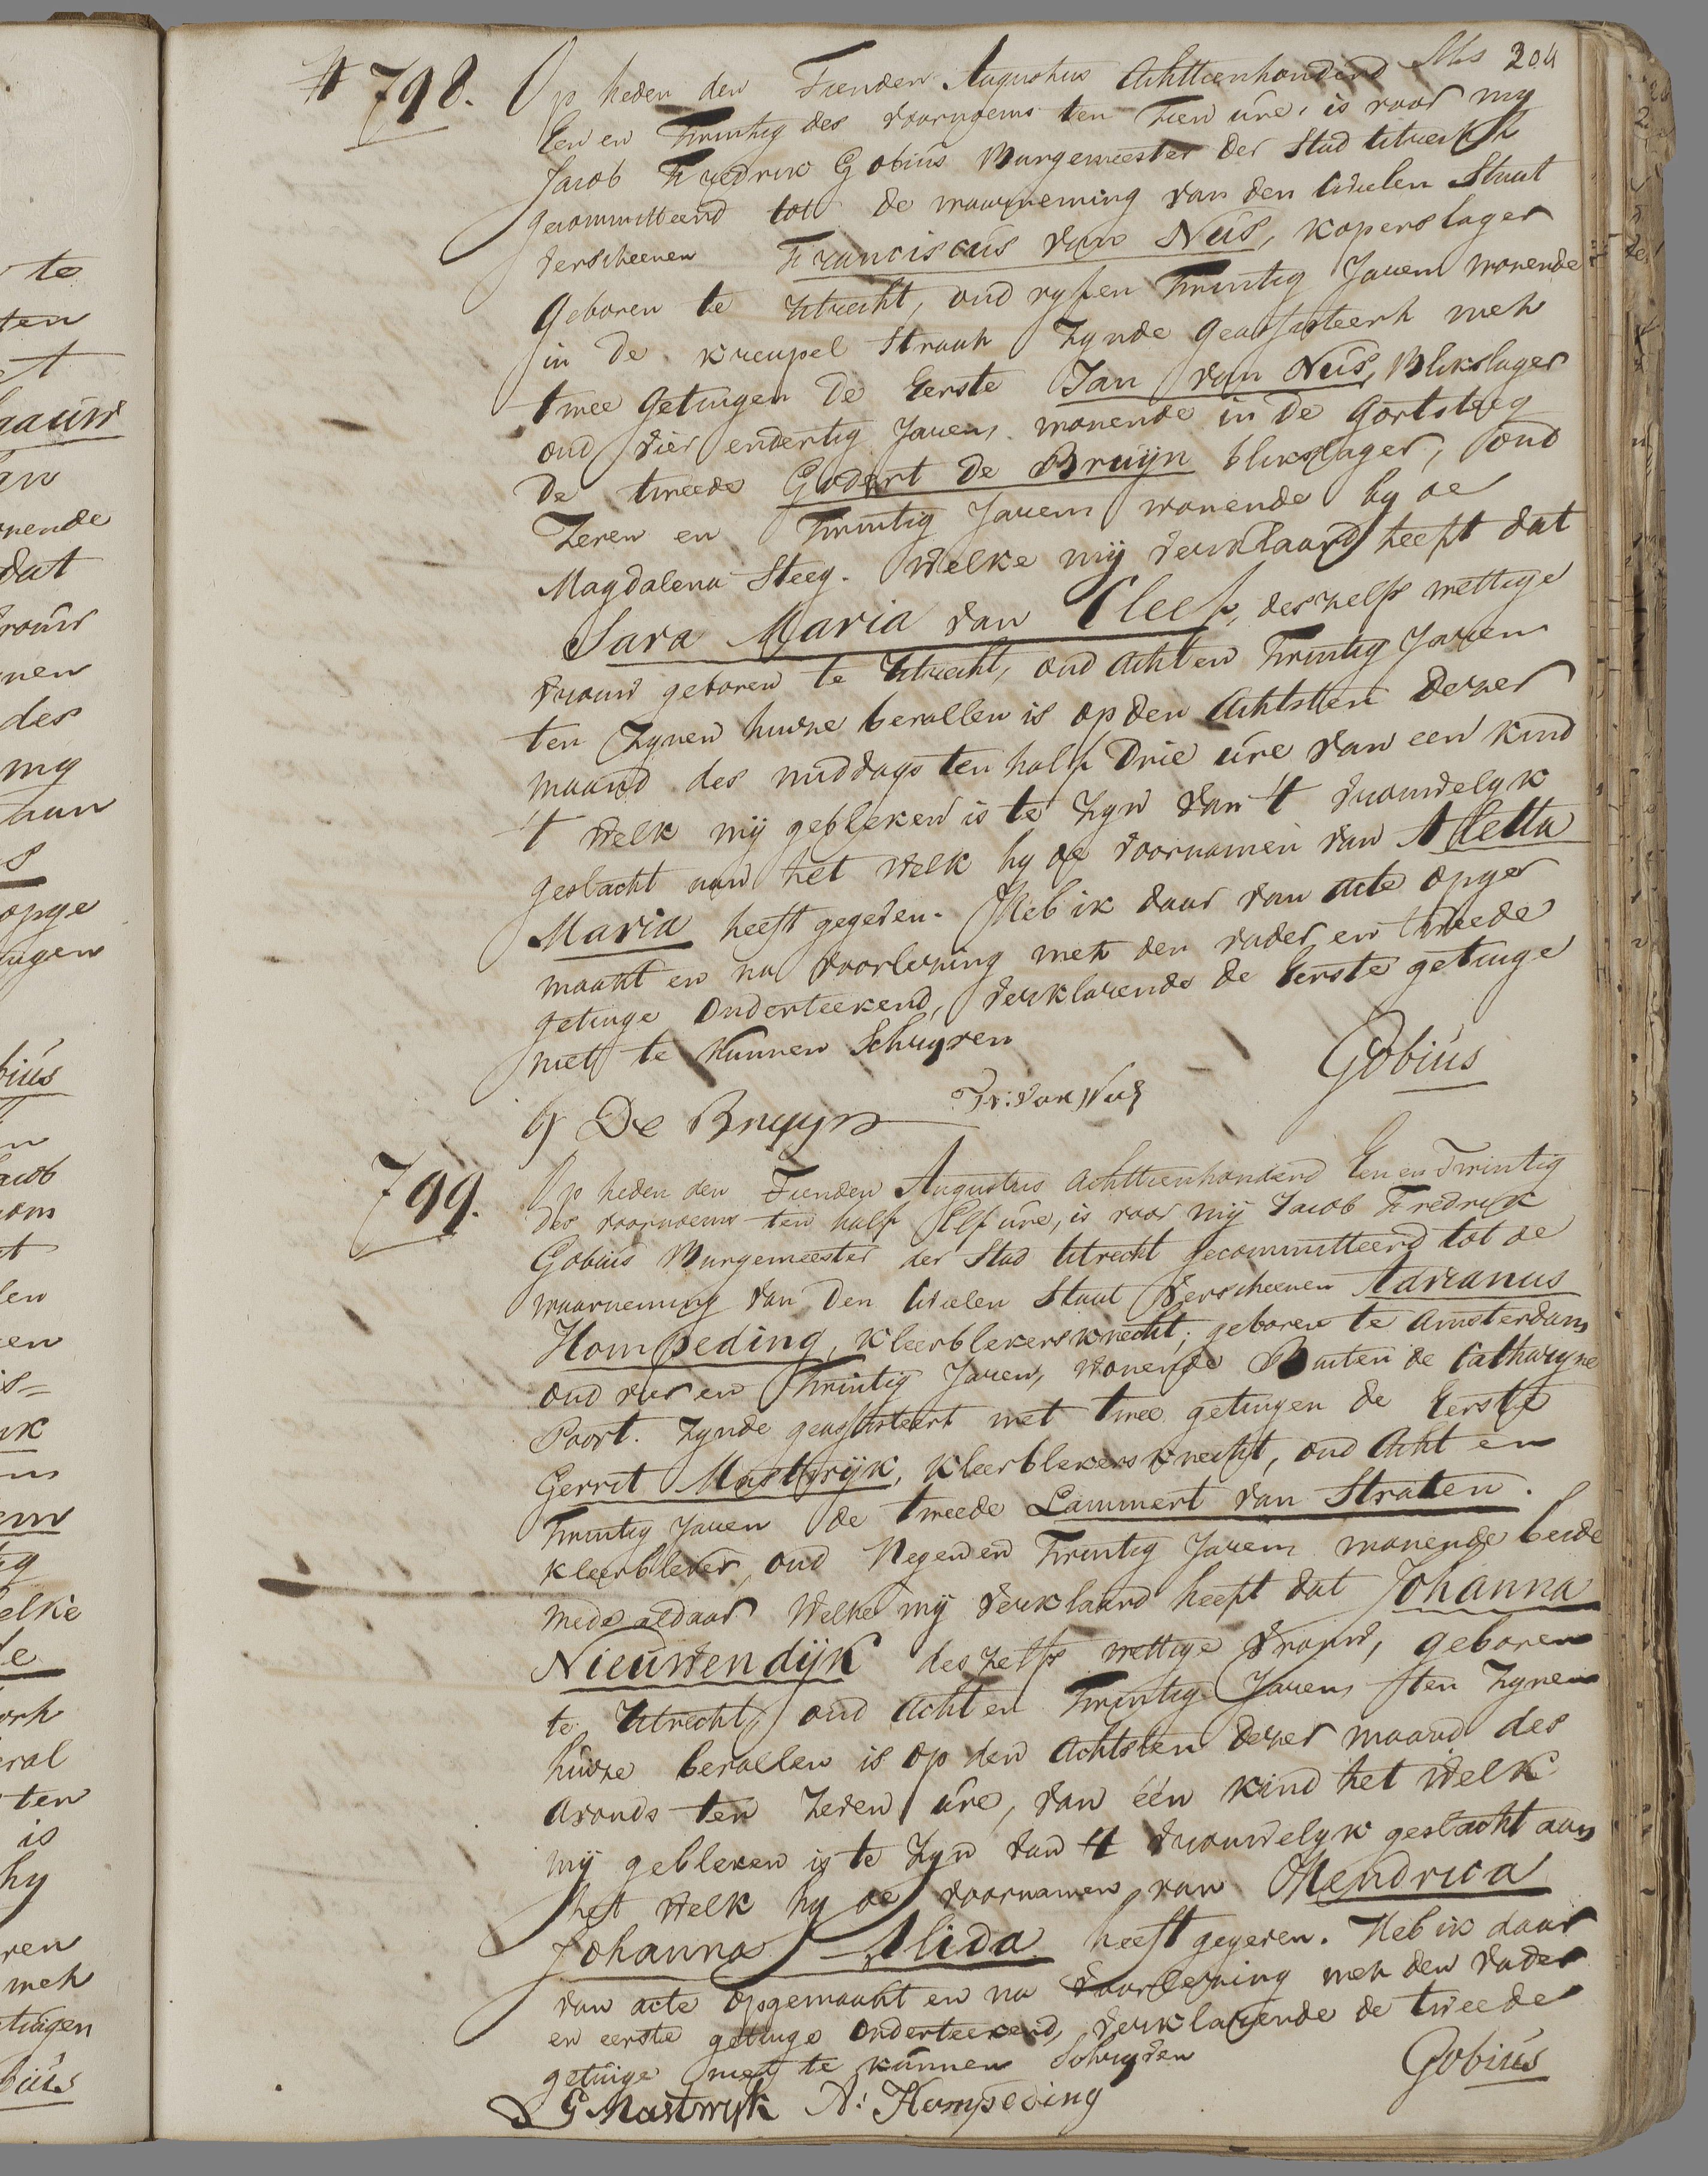 204
# 798. Op heden den Tienden Augustus Achttienhonderd
Een en Twintig des voornoens ten Tien ure, is voor my
Jacob Fredrik Gobius Burgemeester der Stad Utrecht
gecommitteerd tot de waarneming van den Civielen Staat
verscheenen Franciscus van Nus, koperslager
Geboren te Utrecht, oud vyf en Twintig Jaren wonende
in de kreupel Straat Zynde geadsisteert met
twee Getuigen de Eerste Jan van Nus, Blikslager
oud vier en dertig Jaren, wonende in de Gortsteeg
de tweede Godert de Bruijn blikslager, oud
Zeven en Twintig Jaren wonende by de
Magdalena Steeg. Welke mij verklaard heeft dat
Sara Maria van Cleef, deszelfs wettige
vrouw geboren te Utrecht, oud Acht en Twintig Jaren
ten Zynen huize bevallen is op den Achtsten Dezer
maand des middags ten half Drie ure van een kind
't welk mij gebleken is te Zyn van 't vrouwelyk
geslacht aan het welk hy de voornamen van Aletta
Maria heeft gegeven. Heb ik daar van acte opge
maakt en na voorlezing met den vader en tweede
getuige Onderteekend, verklarende de Eerste getuige
niet te kunnen Schryven
Gobius
G De Bruyn Fr: van Nus
799. Op heden den Tienden Augustus Achttienhonderd Een en Twintig
des voornoens ten half Elf ure, is voor mij Jacob Fredrik
Gobius Burgemeester der Stad Utrecht gecommitteerd tot de
waarneming van Den Civielen Staat Verscheenen Adrianus
Hompeding, kleerblekersknecht, geboren te Amsterdam
oud vier en Twintig Jaren, wonende Buiten de Catharyne
Poort. Zynde geadsisteert met twee getuigen de Eerste
Gerrit Mastwijk, kleerblekersknecht, oud Acht en
Twintig Jaren de tweede Lammert van Straten.
kleerbleker, oud Negen en Twintig Jaren wonende beide
mede aldaar Welke mij verklaard heeft dat Johanna
Nieuwendijk deszelfs wettige vrouw, geboren
te Utrecht, oud Acht en Twintig Jaren, ten Zynen
huize bevallen is op den Achtsten Dezer maand des
avonds ten Zeven ure, van één kind het welk
mij gebleken is te Zyn van 't vrouwelyk geslacht aan
het welk hy de voornamen van Hendrica
Johanna Alida heeft gegeven. Heb ik daar
van acte Opgemaakt en na voorlezing met den vader
en eerste getuige Onderteekend, verklarende de tweede
getuige niet te kunnen Schryven
Gobius
G Mastwyk A: Hompeding